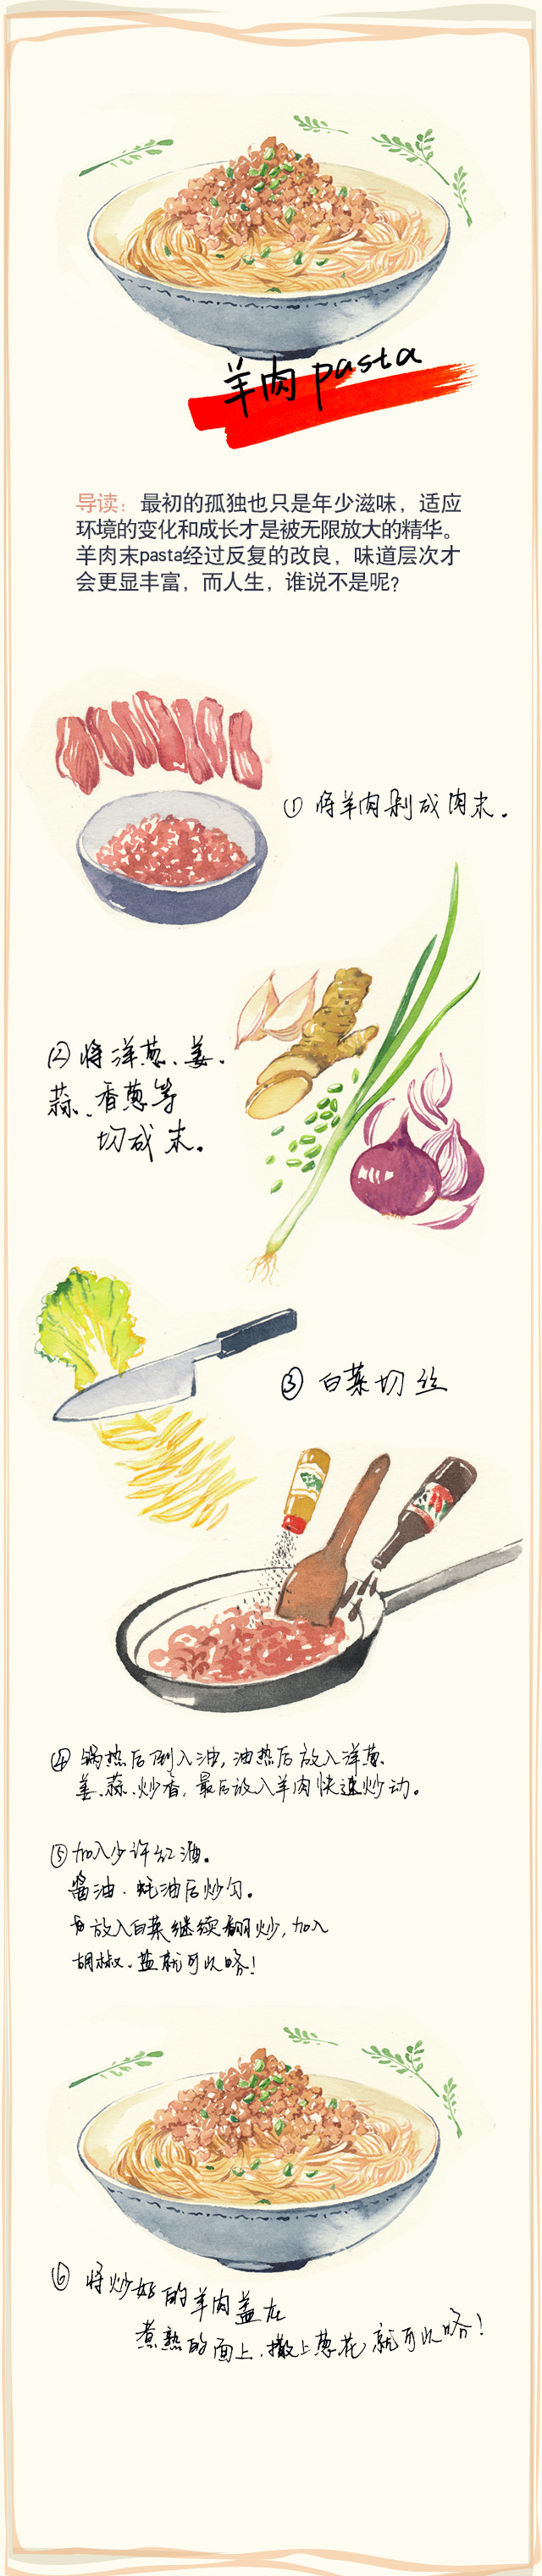 羊肉pasta
导读：最初的孤独也只是年少滋味，适应
环境的变化和成长才是被无限放大的精华。
羊肉末pasta经过反复的改良，味道层次才
会更显丰富，而人生，谁说不是呢？
① 将羊肉剁成肉末。
② 将洋葱、姜、
蒜、香葱等
切成末。
③ 白菜切丝
④ 锅热后倒入油，油热后放入洋葱、
姜、蒜、炒香，最后放入羊肉快速炒动。
⑤ 加入少许红酒。
酱油、蚝油后炒匀。
放入白菜继续翻炒，加入
胡椒、盐就可以咯！
⑥ 将炒好的羊肉盖在
煮熟的面上，撒上葱花就可以咯！